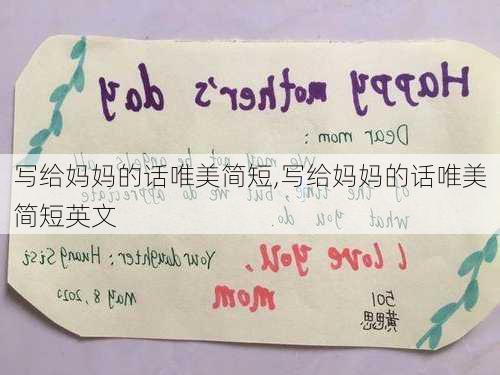 Happy mother's day
Dear mom:
We may not be angels all
of the time, but we do appreciate
what you do.
写给妈妈的话唯美简短,写给妈妈的话唯美
简短英文
I love you,
mom
Your daughter: Huang Sisi
May 8, 2020
501
黄思思